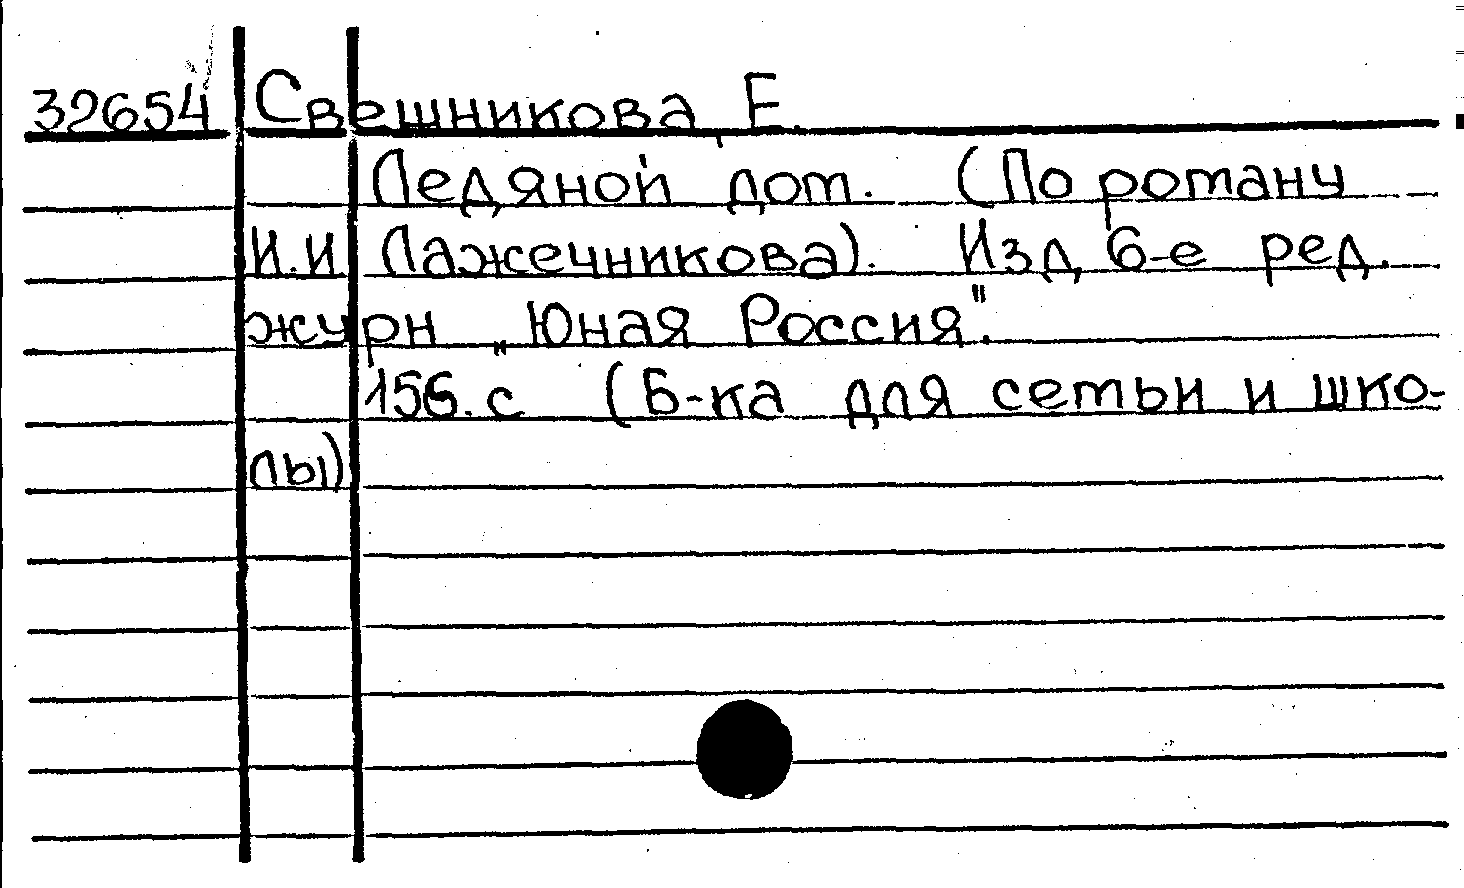 32654 Свешникова, Е.
Ледяной дом. (По роману
И.И Лажечникова). Изд. 6-е ред.
журн „Юная Россия".
156.с (Б-ка для семьи и шко-
лы)